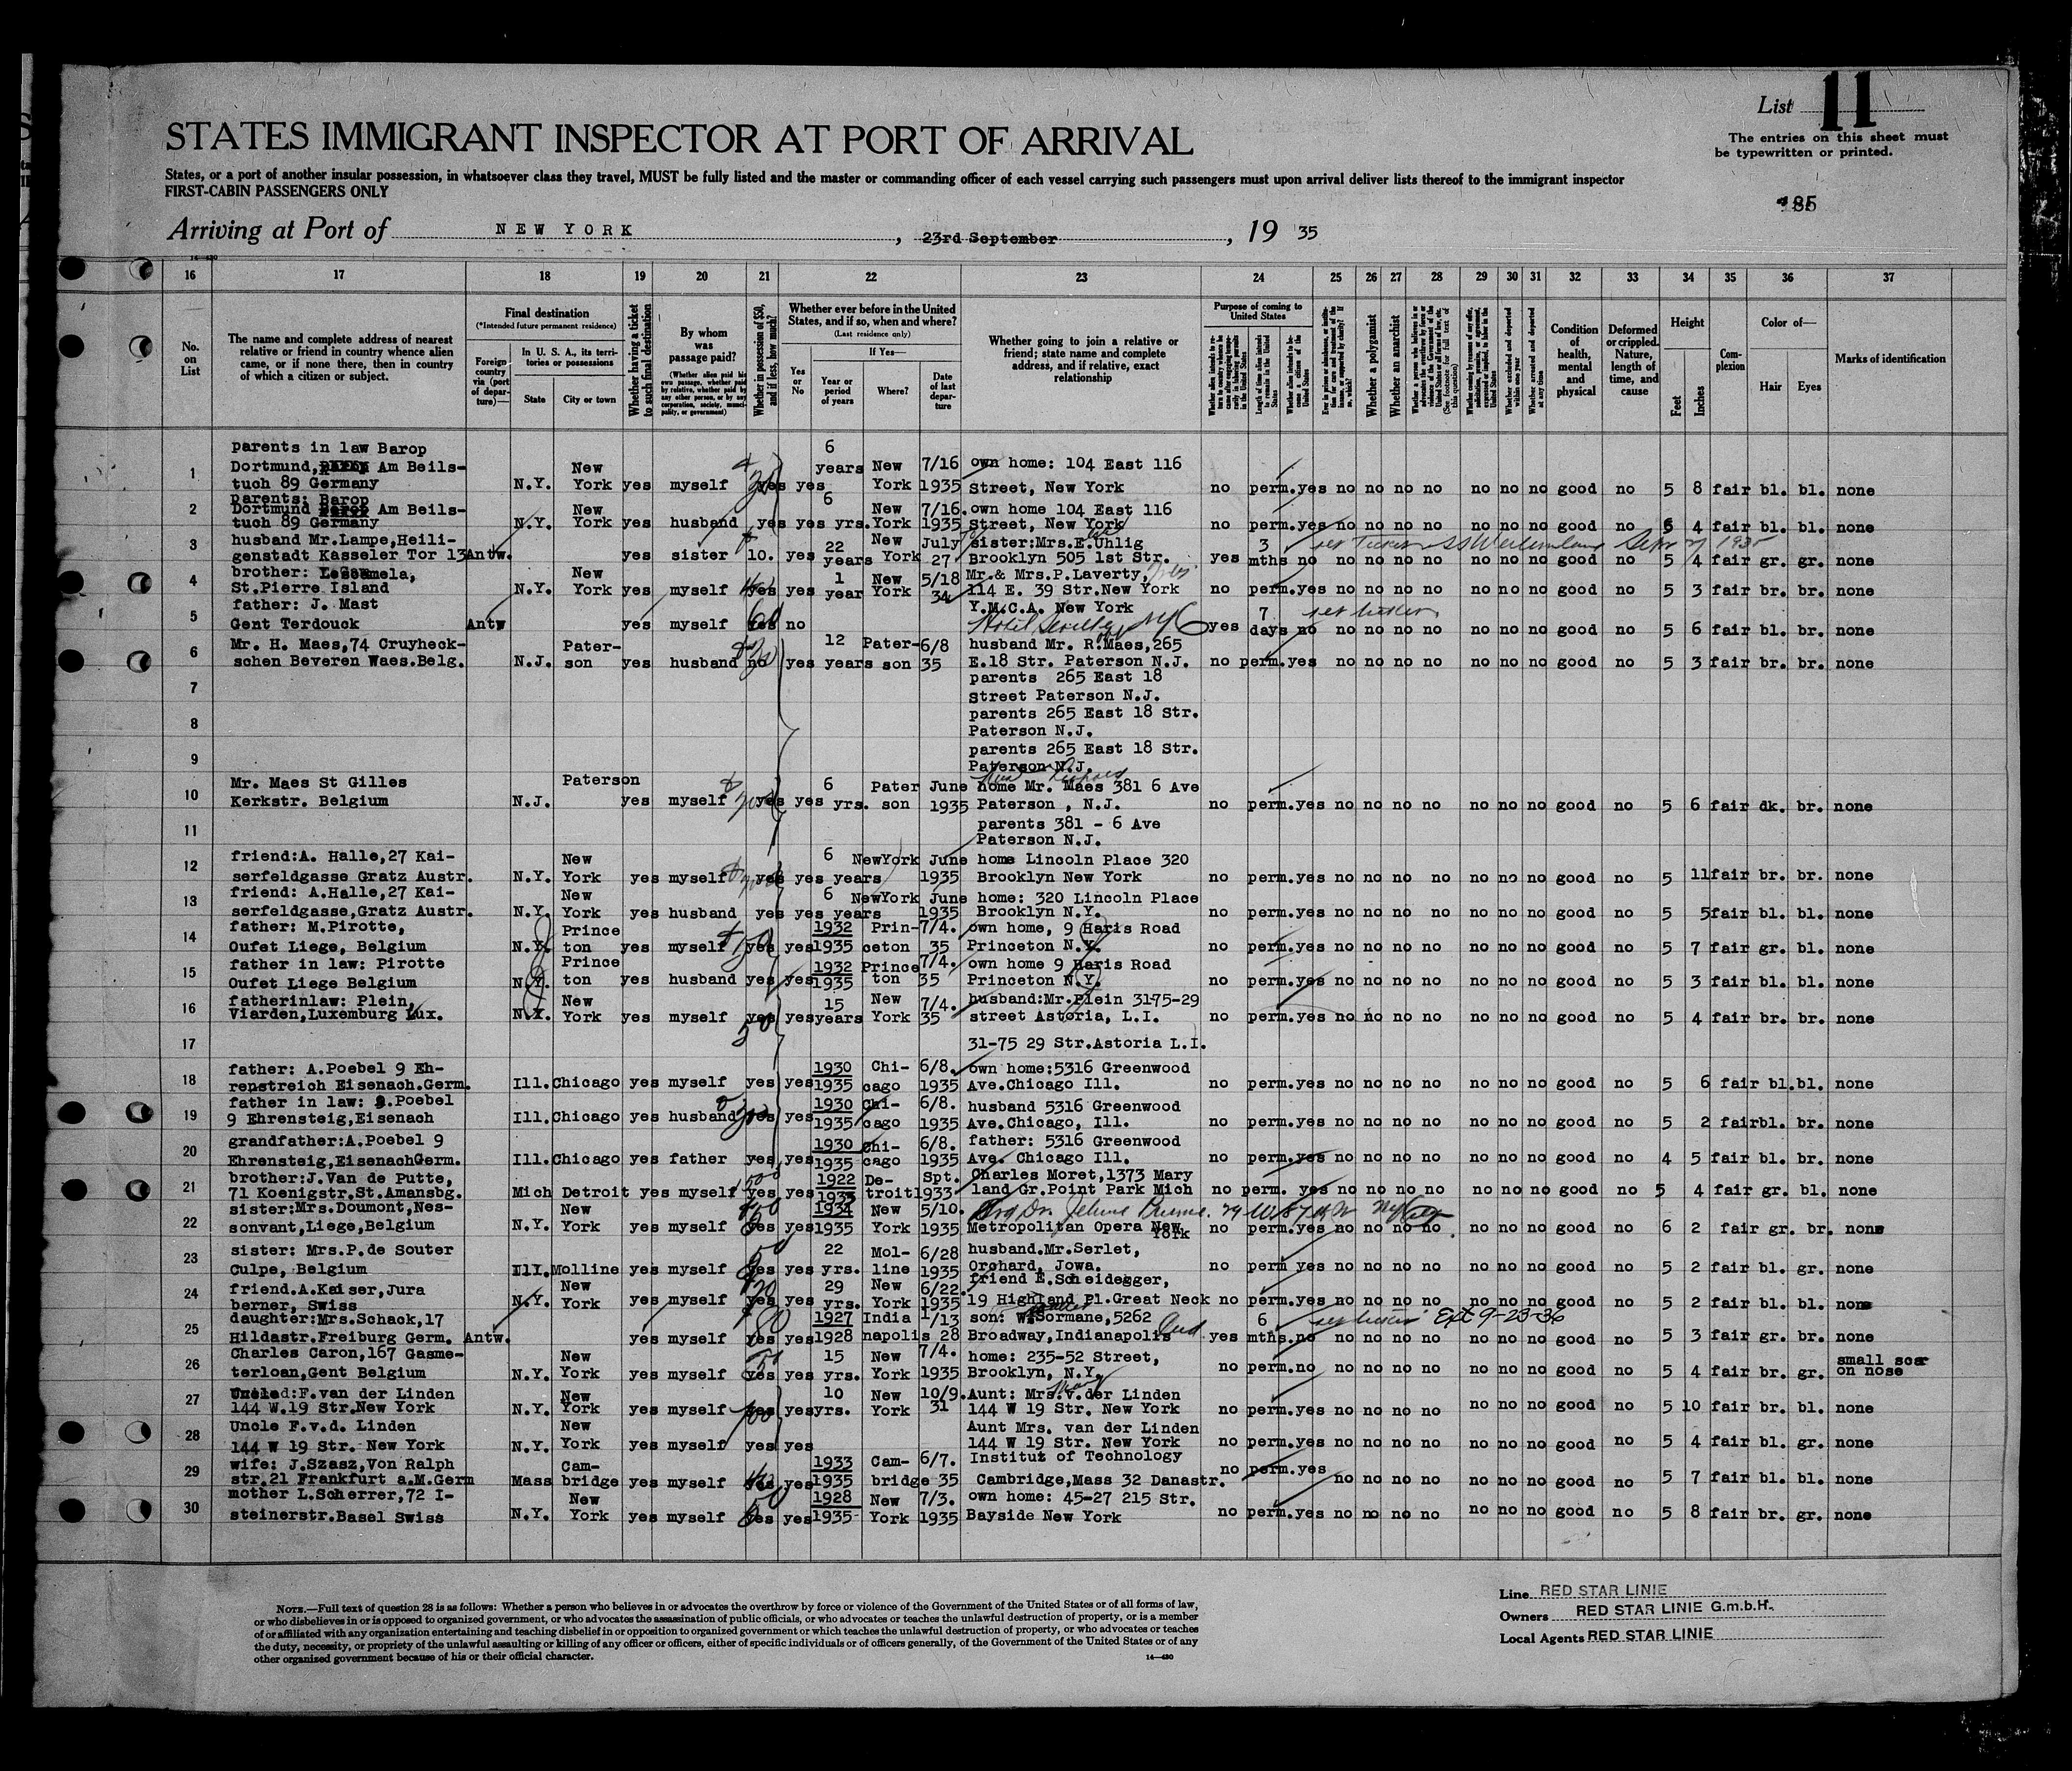 List 11
STATES IMMIGRANT INSPECTOR AT PORT OF ARRIVAL
The entries on this sheet must
be typewritten or printed.
States, or a port of another insular possession, in whatsoever class they travel, MUST be fully listed and the master or commanding officer of each vessel carrying such passengers must upon arrival deliver lists thereof to the immigrant inspector
FIRST-CABIN PASSENGERS ONLY
Arriving at Port of NEW YORK, 23rd September, 19 35
16 17 18 19 20 21 22 23 24 25 26 27 28 29 30 31 32 33 34 35 36 37
No. on List
The name and complete address of nearest relative or friend in country whence alien came, or if none there, then in country of which a citizen or subject.
Final destination
(*Intended future permanent residence)
Foreign country via (port of departure)—
In U. S. A., its territories or possessions
State
City or town
Whether having a ticket to such final destination
By whom was passage paid?
(Whether alien paid his own passage, whether paid by relative, whether paid by any other person, or by any corporation, society, municipality, or government)
Whether in possession of $50, and if less, how much?
Whether ever before in the United States, and if so, when and where?
(Last residence only)
Yes or No
If Yes—
Year or period of years
Where?
Date of last departure
Whether going to join a relative or friend; state name and complete address, and if relative, exact relationship
Purpose of coming to United States
Length of time alien intends to remain in the United States
Whether alien intends to become a citizen of the United States
Whether a polygamist
Whether an anarchist
Whether excluded and deported within one year
Whether arrested and deported at any time
Condition of health, mental and physical
Deformed or crippled. Nature, length of time, and cause
Height
Feet
Inches
Complexion
Color of—
Hair
Eyes
Marks of identification
1 parents in law Barop Dortmund, Am Beilstuch 89 Germany N.Y. New York yes myself yes yes 6 years New York 7/16 1935 own home: 104 East 116 Street, New York no perm. yes no no no no no no no good no 5 8 fair bl. bl. none
2 parents: Barop Dortmund Am Beilstuch 89 Germany N.Y. New York yes husband yes yes 6 yrs. New York 7/16. 1935 own home 104 East 116 Street, New York no perm. yes no no no no no no no good no 5 4 fair bl. bl. none
3 husband Mr.Lampe,Heiligenstadt Kasseler Tor 13 Antw. yes sister 10. yes 22 years New York July 27 sister:Mrs.E.Uhlig Brooklyn 505 1st Str. yes 3 mths no no no no no no no no good no 5 4 fair gr. gr. none
4 brother: St.Pierre Island N.Y. New York yes myself yes yes 1 year New York 5/18 34 Mr.& Mrs.P.Laverty, 114 E. 39 Str.New York no perm. yes no no no no no no no good no 5 3 fair br. br. none
5 father: J. Mast Gent Terdouck Antw yes myself 60 yes no Y.M.C.A. New York yes 7 days no no no no no no no no good no 5 6 fair bl. br. none
6 Mr. H. Maes,74 Cruyheckschen Beveren Waes.Belg. N.J. Paterson yes husband no yes 12 years Paterson 6/8 35 husband Mr. R.Maes,265 E.18 Str. Paterson N.J. no perm. yes no no no no no no no good no 5 3 fair br. br. none
7 parents 265 East 18 street Paterson N.J.
8 parents 265 East 18 Str. Paterson N.J.
9 parents 265 East 18 Str. Paterson N.J.
10 Mr. Maes St Gilles Kerkstr. Belgium N.J. Paterson yes myself yes yes 6 yrs. Pater son June 1935 home Mr. Maes 381 6 Ave Paterson , N.J. no perm. yes no no no no no no no good no 5 6 fair dk. br. none
11 parents 381 - 6 Ave Paterson N.J.
12 friend:A. Halle,27 Kaiserfeldgasse Gratz Austr. N.Y. New York yes myself yes yes 6 years NewYork June 1935 home Lincoln Place 320 Brooklyn New York no perm. yes no no no no no no no good no 5 11 fair br. br. none
13 friend: A.Halle,27 Kaiserfeldgasse,Gratz Austr. N.Y. New York yes husband yes yes 6 years NewYork June 1935 home: 320 Lincoln Place Brooklyn N.Y. no perm. yes no no no no no no no good no 5 5 fair bl. bl. none
14 father: M.Pirotte, Oufet Liege, Belgium N.Y. Prince ton yes myself yes yes 1932 1935 Prin-ceton 7/4. 35 own home, 9 Haris Road Princeton N.Y. no perm. yes no no no no no no no good no 5 7 fair gr. bl. none
15 father in law: Pirotte Oufet Liege Belgium N.Y. Prince ton yes husband yes yes 1932 1935 Prince ton 7/4. 35 own home 9 Haris Road Princeton N.Y. no perm. yes no no no no no no no good no 5 3 fair bl. bl. none
16 fatherinlaw: Plein, Viarden,Luxemburg Lux. N.Y. New York yes myself yes yes 15 years New York 7/4. 35 husband:Mr.Plein 3175-29 street Astoria, L.I. no perm. yes no no no no no no no good no 5 4 fair br. br. none
17 31-75 29 Str.Astoria L.I.
18 father: A.Poebel 9 Ehrenstreich Eisenach.Germ. Ill. Chicago yes myself yes yes 1930 1935 Chi-cago 6/8. 1935 own home:5316 Greenwood Ave.Chicago Ill. no perm. yes no no no no no no no good no 5 6 fair bl. bl. none
19 father in law: .Poebel 9 Ehrensteig,Eisenach Ill. Chicago yes husband yes yes 1930 1935 Chi-cago 6/8. 1935 husband 5316 Greenwood Ave.Chicago, Ill. no perm. yes no no no no no no no good no 5 2 fair bl. br. none
20 grandfather:A.Poebel 9 Ehrensteig,EisenachGerm. Ill. Chicago yes father yes yes 1930 1935 Chi-cago 6/8. 1935 father: 5316 Greenwood Ave. Chicago Ill. no perm. yes no no no no no no no good no 4 5 fair bl. br. none
21 brother:J.Van de Putte, 71 Koenigstr.St.Amansbg. Mich Detroit yes myself yes yes 1922 1933 De-troit Spt. 1933 Charles Moret,1373 Mary land Gr.Point Park Mich no perm. yes no no no no no no no good no 5 4 fair gr. bl. none
22 sister:Mrs.Doumont,Nessonvant,Liege,Belgium N.Y. New York yes myself yes yes 1934 1935 New York 5/10. 1935 Metropolitan Opera New York no perm. yes no no no no no no no good no 6 2 fair gr. br. none
23 sister: Mrs.P.de Souter Culpe, Belgium Ill. Molline yes myself yes yes 22 yrs. Mol-line 6/28 1935 husband.Mr.Serlet, Orchard, Jowa. no perm yes no no no no no no no good no 5 2 fair bl. gr. none
24 friend.A.Kaiser,Jura berner, Swiss N.Y. New York yes myself yes yes 29 yrs. New York 6/22. 1935 friend E.Scheidegger, 19 Highland Pl.Great Neck no perm. yes no no no no no no no good no 5 2 fair bl. bl. none
25 daughter:Mrs.Schack,17 Hildastr.Freiburg Germ. Antw. yes myself 80 yes yes 1927 1928 India napolis 1/13 28 son: W.Sormane,5262 Broadway,Indianapolis Ind. yes 6 mths. no no no no no no no no good no 5 3 fair gr. br. none
Ext 9-23-36
26 Charles Caron,167 Gasmeterloan,Gent Belgium N.Y. New York yes myself yes yes 15 yrs. New York 7/4. 1935 home: 235-52 Street, Brooklyn, N.Y. no perm. no no no no no no no no good no 5 4 fair br. gr. small scar on nose
27 :F.van der Linden 144 W.19 Str.New York N.Y. New York yes myself yes yes 10 yrs. New York 10/9. 31 Aunt: Mrs.v.der Linden 144 W 19 Str. New York no perm. yes no no no no no no no good no 5 10 fair br. bl. none
28 Uncle F.v.d. Linden 144 W 19 Str. New York N.Y. New York yes myself yes yes Aunt Mrs. van der Linden 144 W 19 Str. New York no perm. yes no no no no no no no good no 5 4 fair bl. gr. none
29 wife: J.Szasz,Von Ralph str.21 Frankfurt a.M.Germ Mass Cam-bridge yes myself yes yes 1933 1935 Cam-bridge 6/7. 35 Institut of Technology Cambridge,Mass 32 Danastr. no perm. yes no no no no no no no good no 5 7 fair bl. bl. none
30 mother L.Scherrer,72 I-steinerstr.Basel Swiss N.Y. New York yes myself yes yes 1928 1935 New York 7/3. 1935 own home: 45-27 215 Str. Bayside New York no perm. yes no no no no no no no good no 5 8 fair br. gr. none
NOTE.—Full text of question 28 is as follows: Whether a person who believes in or advocates the overthrow by force or violence of the Government of the United States or of all forms of law,
or who disbelieves in or is opposed to organized government, or who advocates the assassination of public officials, or who advocates or teaches the unlawful destruction of property, or is a member
of or affiliated with any organization entertaining and teaching disbelief in or opposition to organized government or which teaches the unlawful destruction of property, or who advocates or teaches
the duty, necessity, or propriety of the unlawful assaulting or killing of any officer or officers, either of specific individuals or of officers generally, of the Government of the United States or of any
other organized government because of his or their official character.
14—430
Line RED STAR LINIE
Owners RED STAR LINIE G.m.b.H.
Local Agents RED STAR LINIE